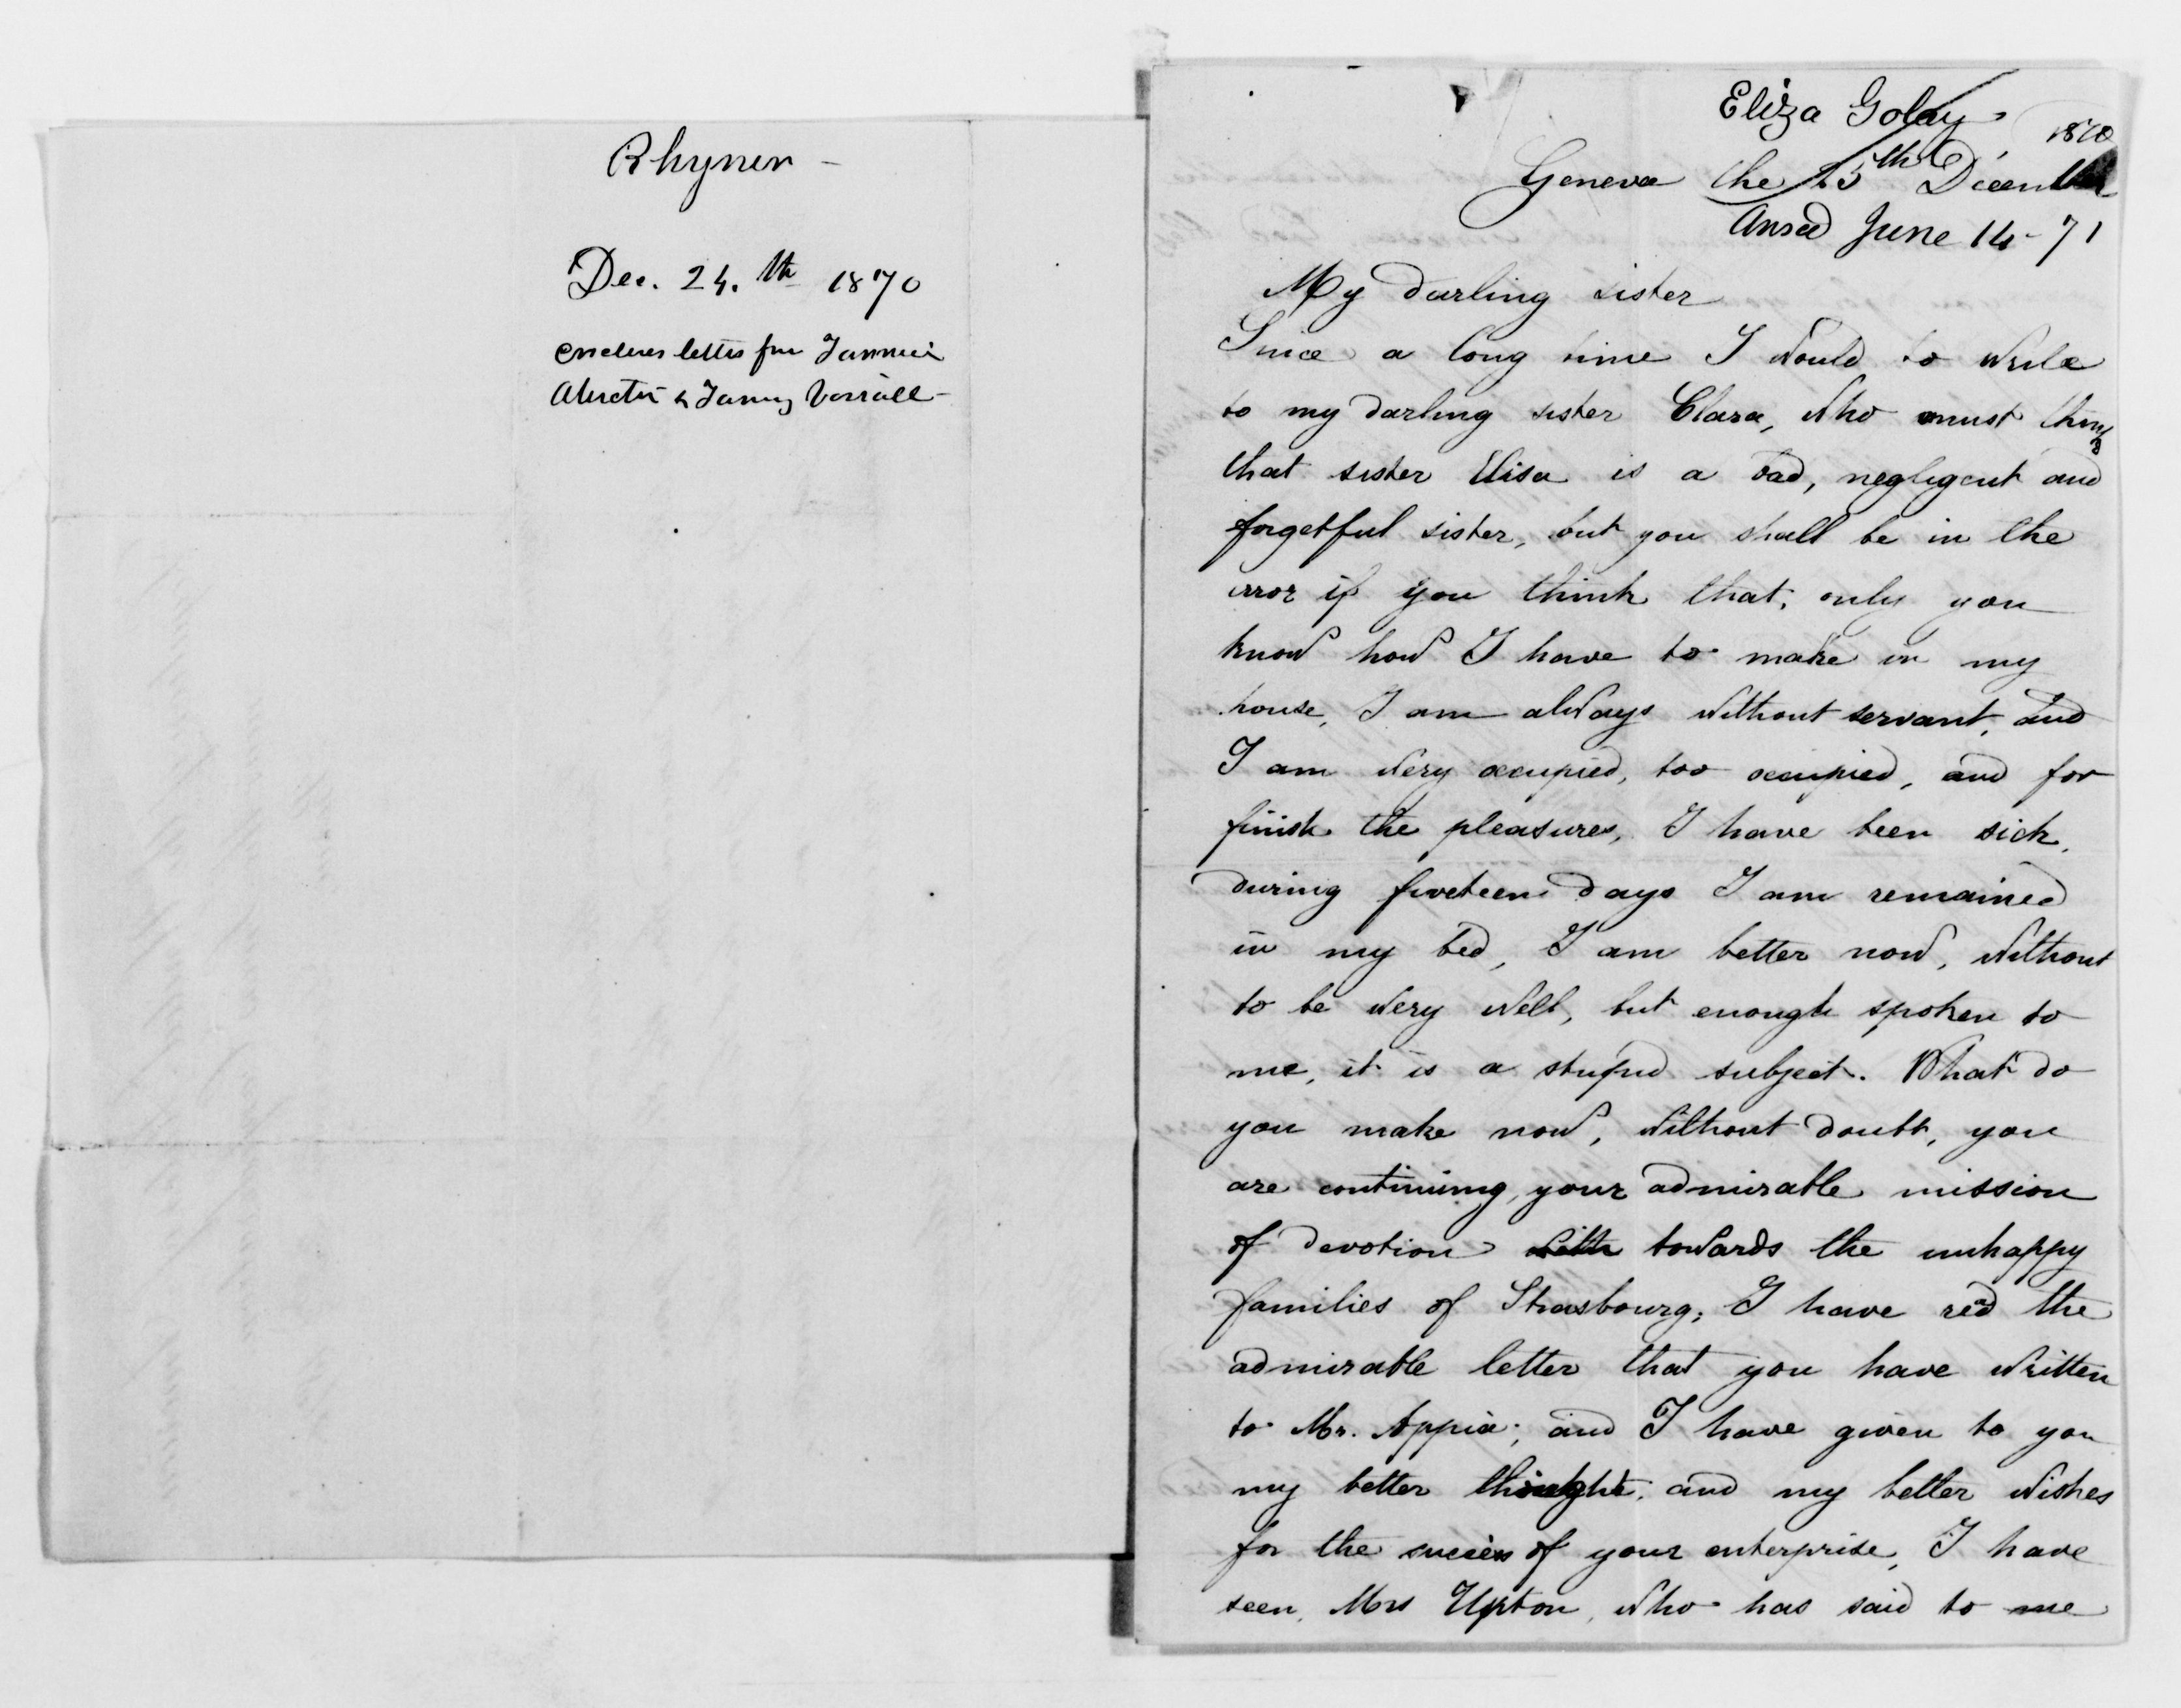 Rhyner -
Dec. 24.th 1870
encloses letter
& Fanny
Eliza Golay
1870
Geneva the 25th December
Ansed June 14 - 71
My darling sister
Since a long time I would to write
to my darling sister Clara, who must think
that sister Elisa is a bad, negligent and
forgetful sister, but you shall be in the
error if you think that, only you
know how I have to make in my
house, I am always without servant, and
I am very occupied, too occupied, and for
finish the pleasures, I have been sick,
during fiveteen days I am remained
in my bed, I am better now, without
to be very well, but enough spoken to
me, it is a stupid subject. What do
you make now, without doubt, you
are continuing, your admirable mission
of devotion with towards the unhappy
families of Strasbourg; I have red the
admirable letter that you have written
to Mr. Appia; and I have given to you
my better thought, and my better wishes
for the succès of your enterprise, I have
seen, Mrs Upton, who has said to me